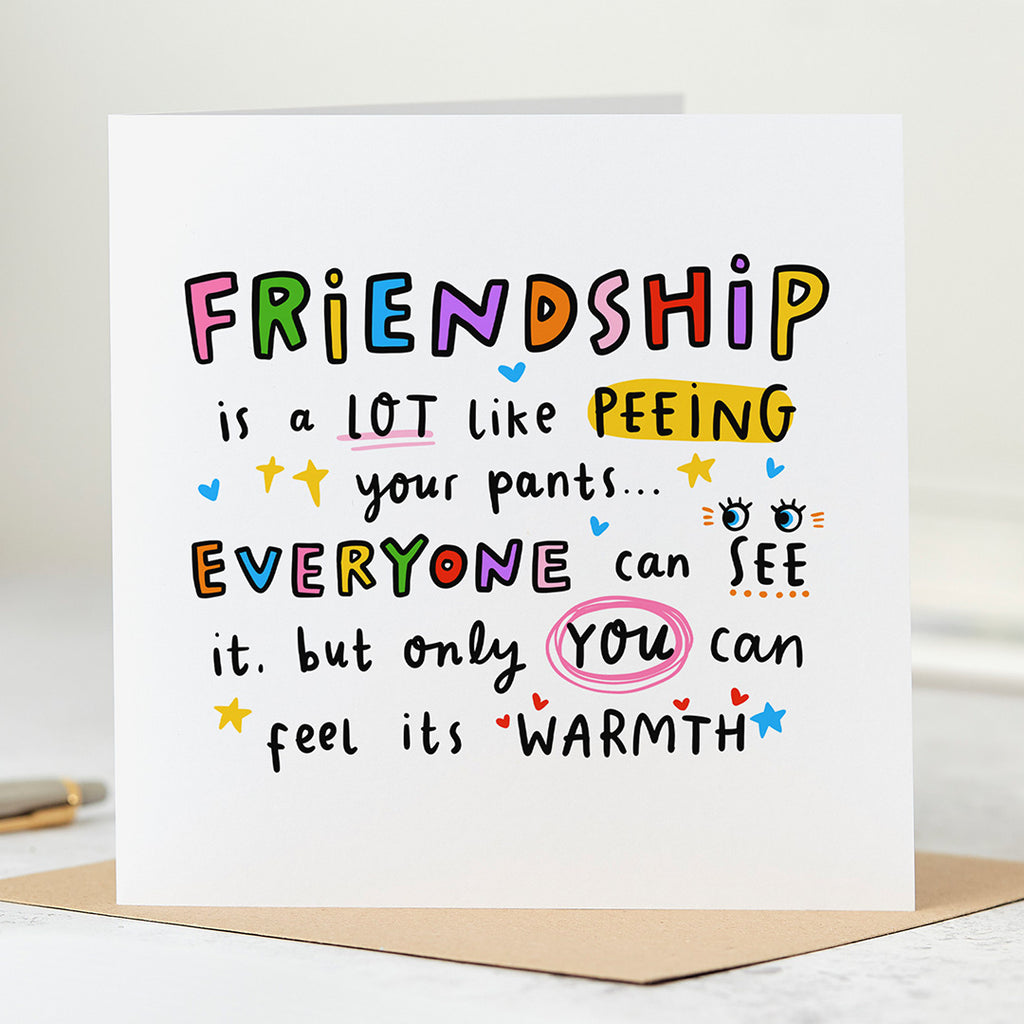 FRiENDSHiP
is a LOT like PEEiNG
your pants...
EVERYONE can SEE
it. but only YOU can
feel its WARMTH